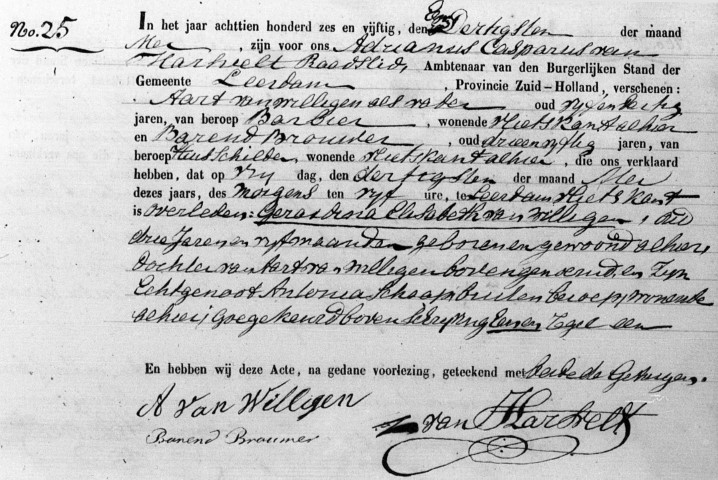 No. 25
In het jaar achttien honderd zes en vijftig, den Een Dertigsten der maand
Mei, zijn voor ons Adrianus Casparus van
Hartvelt Raadslid, Ambtenaar van den Burgerlijken Stand der
Gemeente Leerdam, Provincie Zuid-Holland, verschenen:
Aart van Willigen als vader oud vyf en dertig
jaren, van beroep Barbier, wonende Vlietskant alhier
en Barend Brouwer, oud drieenvyftig jaren, van
beroep Huisschilder, wonende Vlietskant alhier, die ons verklaard
hebben, dat op Vry dag, den dertigsten der maand Mei
dezes jaars, des Morgens ten vyf ure, te Leerdam Vlietskant
is overleden: Elisabeth van Willigen, oud
drie Jaren en vyf maanden geboren en gewoond alhier,
Dochter van Aart van Willigen bovengenoemd, en Zyn
Echtgenoot Antonia Schaap buiten beroep, wonende
alhier; goegekeurd boven een
En hebben wij deze Acte, na gedane voorlezing, geteekend met beide de Getuigen.
A van Willigen
van Hartvelt
Barend Brouwer